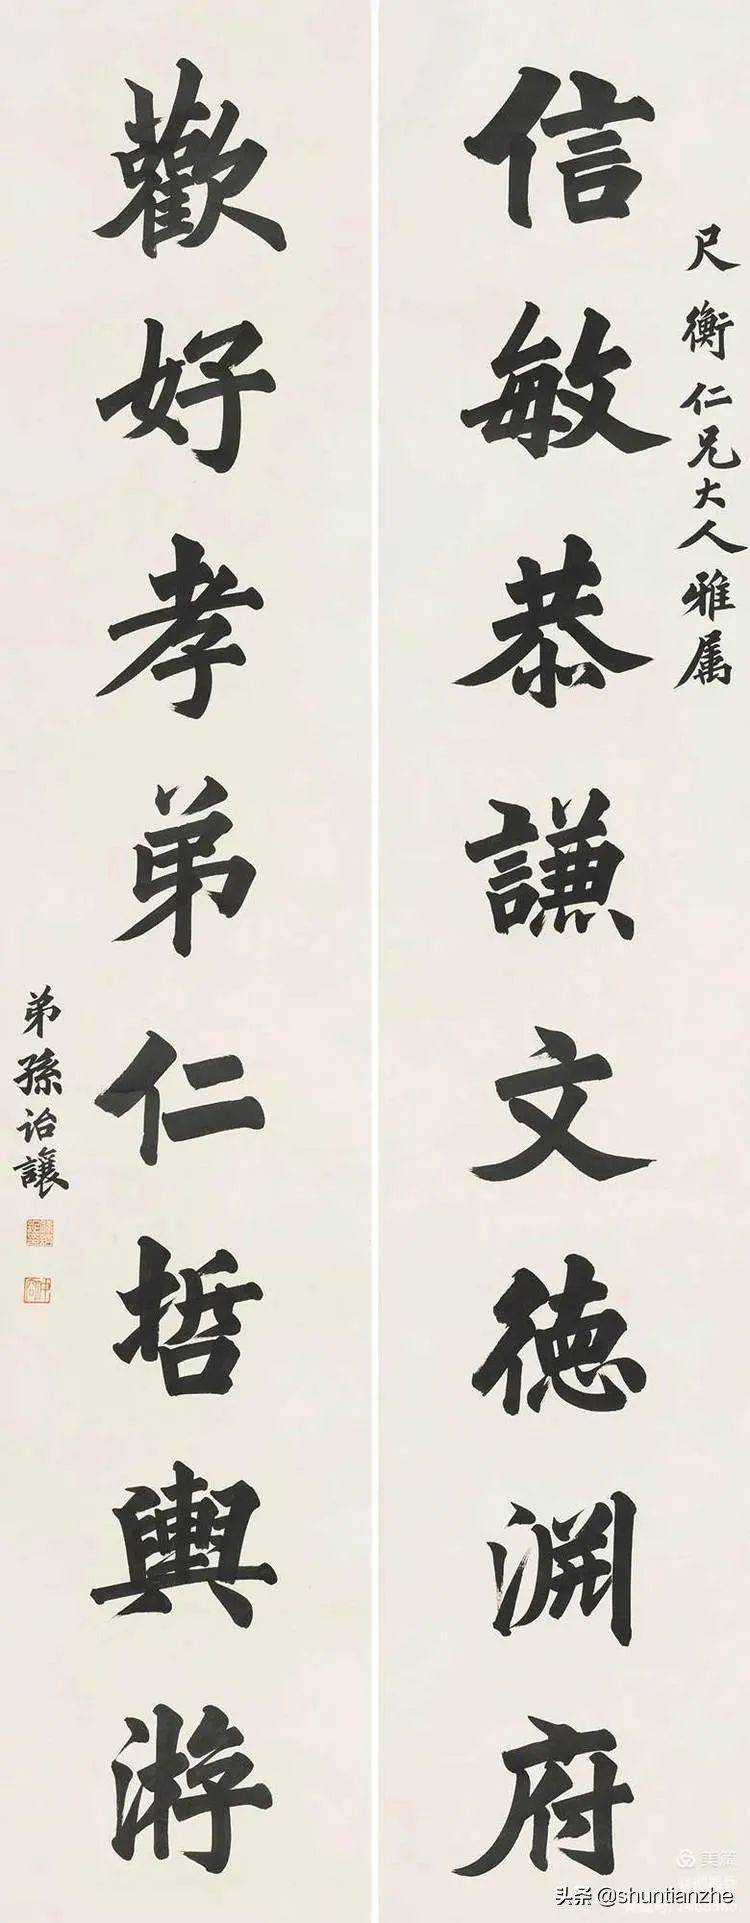 尺衡仁兄大人雅属
信敏恭謙文德渊府
歡好孝弟仁哲輿游
弟孫治讓
头条@shuntianzhe